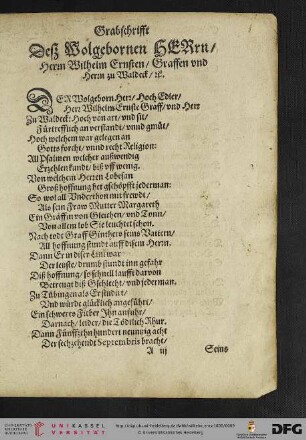 Grabschrifft
Deß Wolgebornen HERrn/
Herrn Wilhelm Ernsten/ Graffen vnd
Herrn zu Waldeck/ ꝛc.
DER Wolgeborn Herr/ Hoch Edler/
Herr Wilhelm Ernst Graff/ vnd Herr
Zu Waldeck: Hoch von art/ vnd sit/
Fürtrefflich an verstandt/ vnnd gmüt/
Hoch welchem war gelegen an
Gotts forcht/ vnnd recht Religion:
All Psalmen welcher außwendig
Erzehlen kundt/ biß vff wenig.
Von welchem Herren Lobesan
Groß hoffnung het gschöpfft jederman:
So wol all Vnderthon mit frewdt/
Als sein Fraw Mutter Margareth
Ein Gräffin von Gleichen/ vnd Tonn/
Von allem lob Sie leuchtet schon.
Nach todt Graff Günthers seins Vattern/
All hoffnung stundt auff disem Herrn.
Dann Er in diser Lini war
Der letste/ drumb stundt inn gefahr
Diß hoffnung/ so schnell laufft darvon
Betrengt diß Gschlecht/ vnd jederman.
Zu Tübingen als Er studirt/
Und würdt glücklich angeführt/
Ein schweres Fieber Ihn anfuhr/
Darnach/ leider/ die Tödtlich Rhur.
Dann Fünffzehnhundert neuntzig acht
Der sechzehendt Septembris bracht/
A iij
Seins
UNIKASSEL
VERSITÄT
DFG